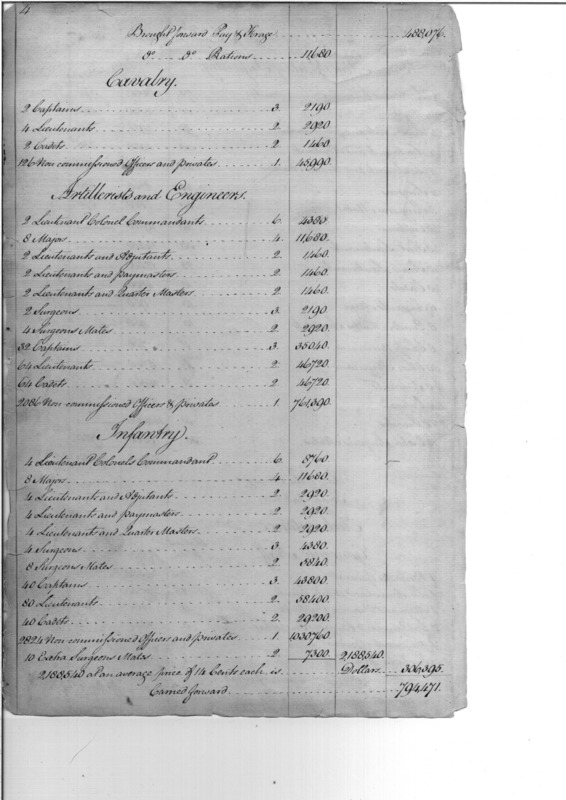 4
Brought forward Pay & Forage 488.076.
do do Rations 11680
Cavalry.
2 Captains 3. 2190
4 Lieutenants 2. 2920
2 Cadets 2 1460
126 Non commissioned Officers and privates 1. 45990.
Artillerists and Engineers.
2 Lieutenant Colonel Commandants 6. 4380
8 Majors 4. 11680.
2 Lieutenants and Adjutants 2. 1460.
2 Lieutenants and paymasters 2. 1460.
2 Lieutenants and Quarter Masters 2. 1460
2 Surgeons 3. 2190
4 Surgeons Mates 2. 2920.
32 Captains 3. 35040.
64 Lieutenants 2. 46720
64 Cadets 2. 46720.
2086 Non commissioned Officers & privates 1. 761390.
Infantry.
4 Lieutenant Colonels Commandant 6. 8760
8 Majors 4. 11680
4 Lieutenants and Adjutants 2. 2920
4 Lieutenants and paymasters 2. 2920.
4 Lieutenants and Quarter Masters 2. 2920
4 Surgeons 3. 4380.
8 Surgeons Mates 2. 5840.
40 Captains 3. 43800
80 Lieutenants 2. 58400.
40 Cadets 2. 29200.
2824 Non commissioned Officers and privates 1. 1030760
10 Extra Surgeons Mates 2 7300 2,188540.
2188540 at an average price of 14 Cents each is Dollars 306395.
Carried forward 794,471.